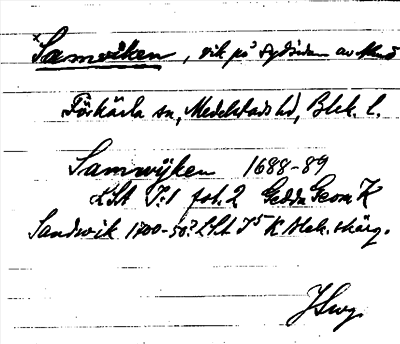 *Samviken, vik på sydsidan av Almö
Förkärla sn, Medelstads hd, Blek. l.
Samwijken 1688-89
LSA P:1 fol. 2 Gedda Geom K
Sandwik 1700-50? LSA K Blek. skärg.